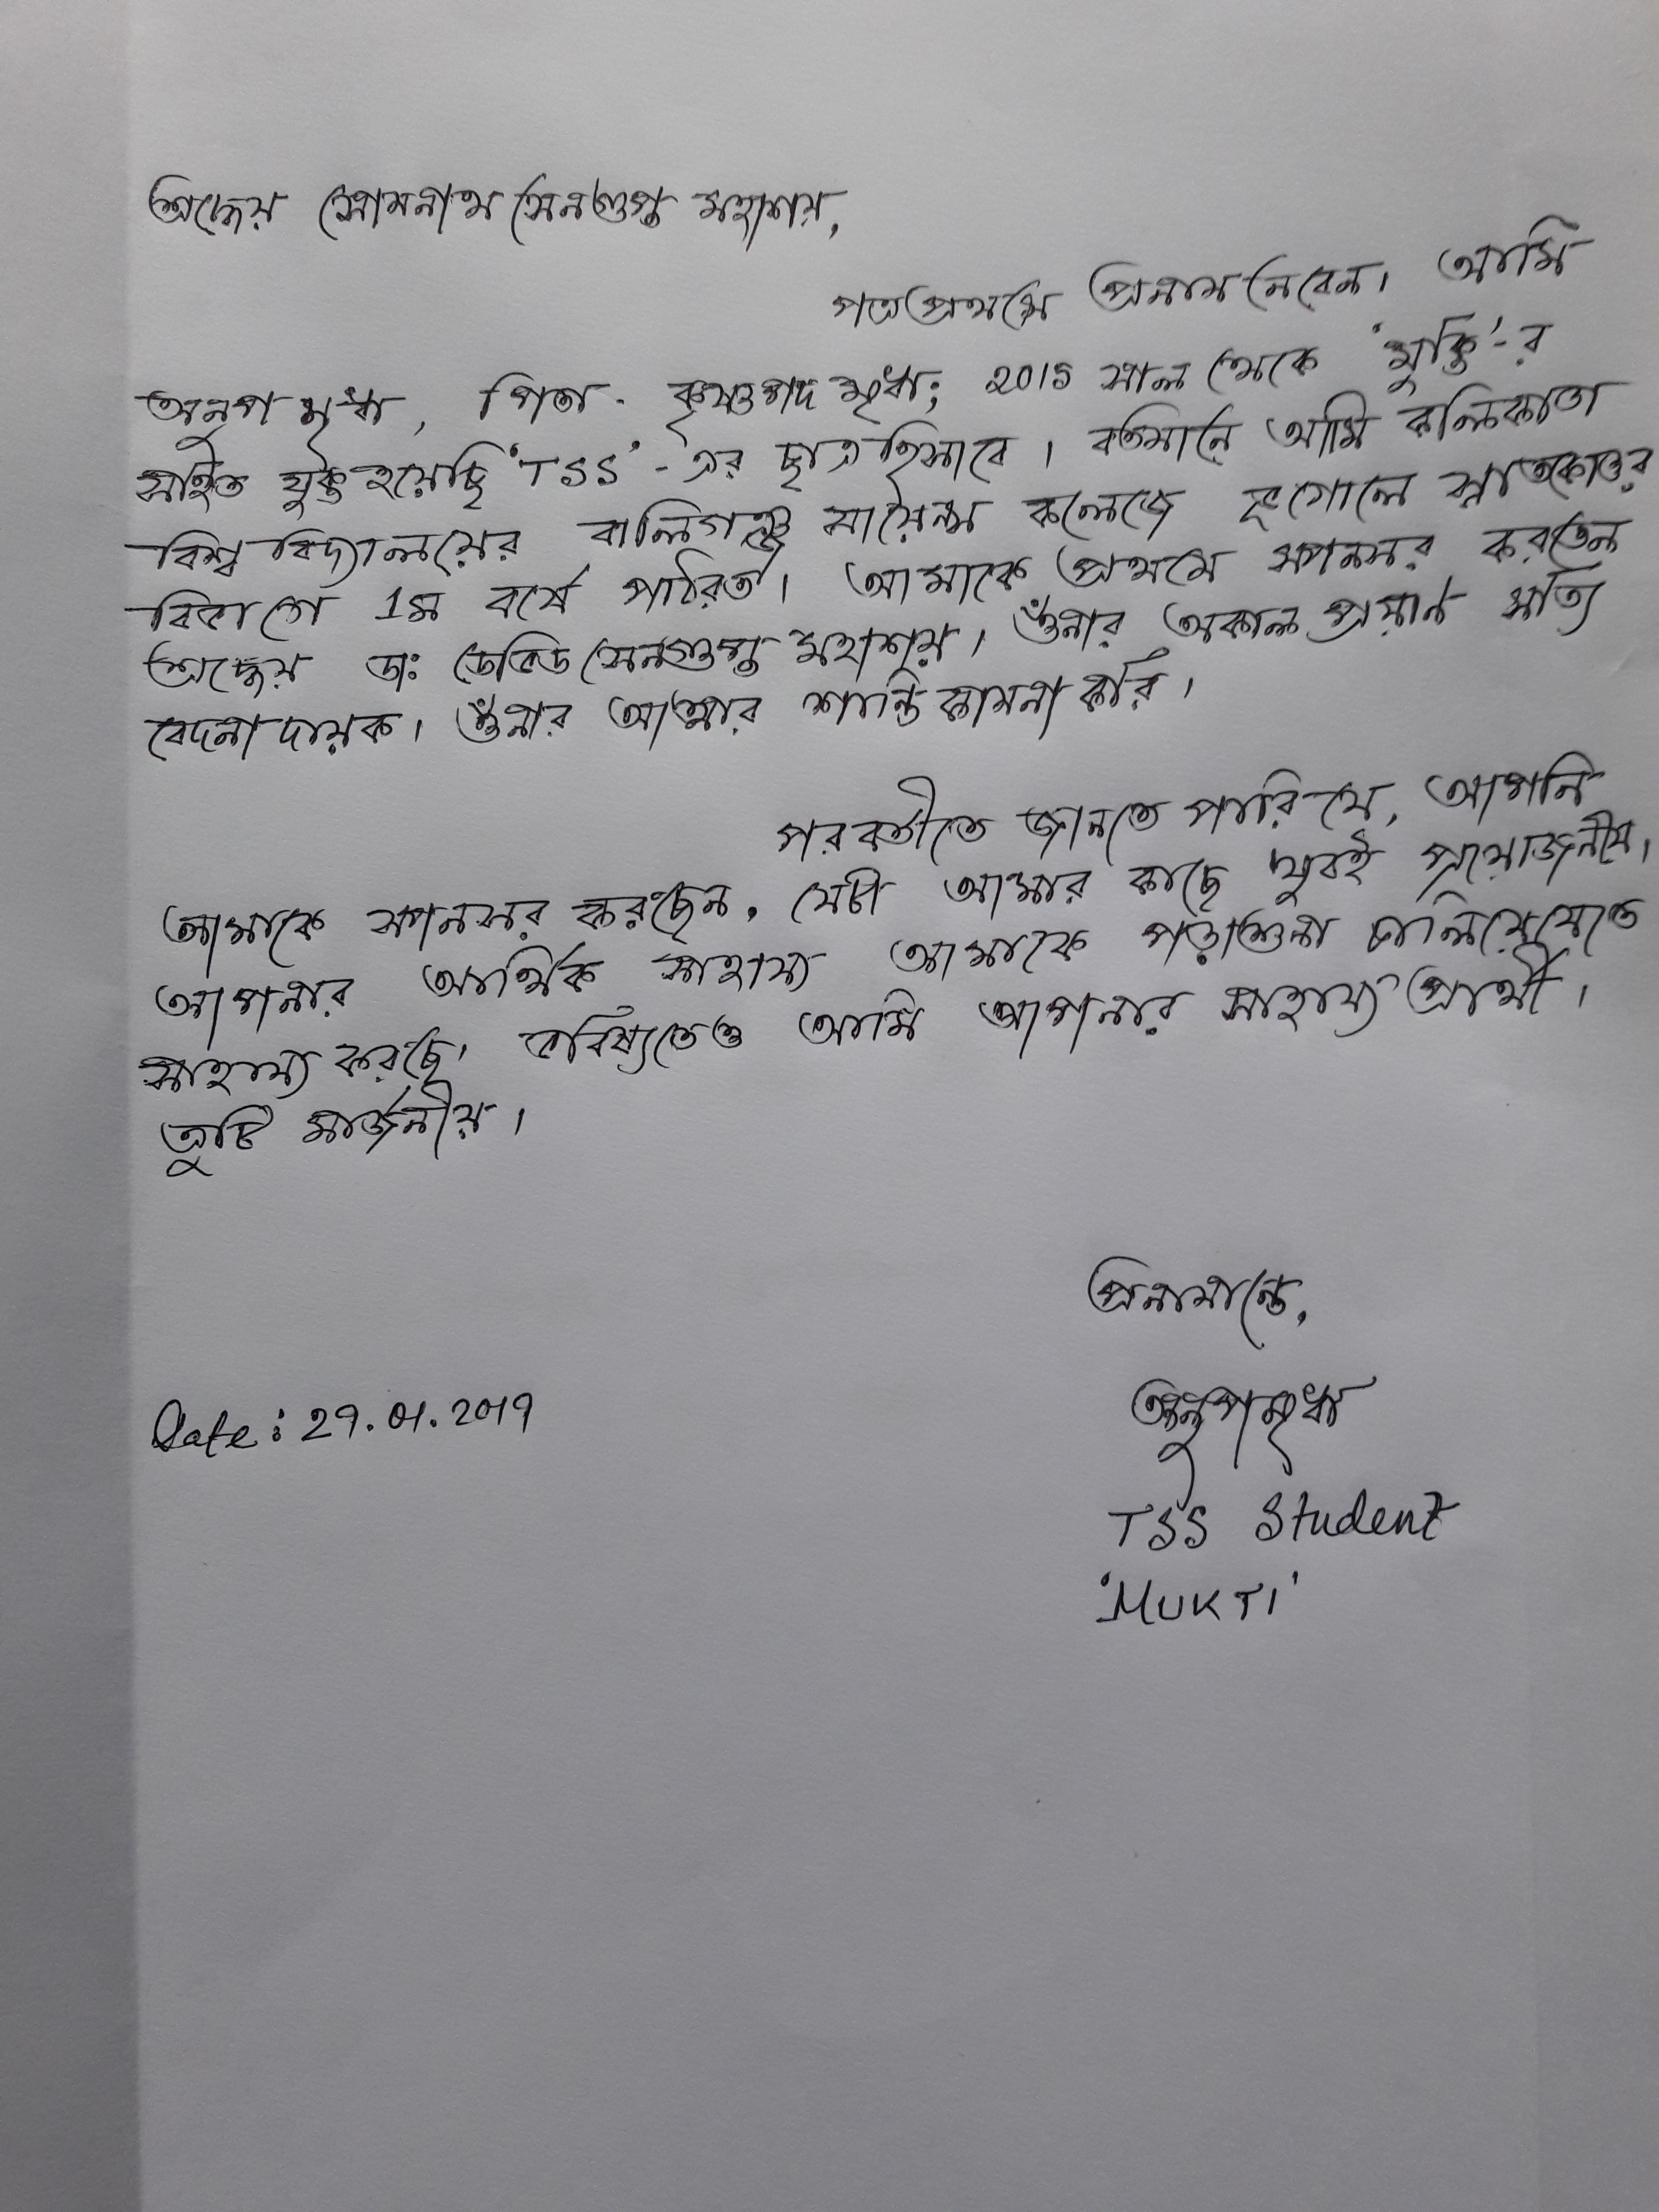 শ্রদ্ধেয় সোমনাথ সেনগুপ্ত মহাশয়,
পত্রপ্রথমে প্রনাম নেবেন। আমি
অনুপ মৃধা, পিতা - কৃষ্ণপদ মৃধা; 2015 সাল থেকে 'মুক্তি'-র
সহিত যুক্ত হয়েছি 'TSS'-এর ছাত্র হিসাবে। বর্তমানে আমি কলিকাতা
বিশ্ববিদ্যালয়ের বালিগঞ্জ সায়েন্স কলেজে ভূগোলে স্নাতকোত্তর
বিভাগে 1ম বর্ষে পাঠরত। আমাকে প্রথমে স্পনসর করতেন
শ্রদ্ধেয় ডাঃ ডেভিড সেনগুপ্ত মহাশয়। ওঁনার অকাল প্রয়াণ সত্যি
বেদনাদায়ক। ওঁনার আত্মার শান্তি কামনা করি।
পরবর্তীতে জানতে পারি যে, আপনি
আমাকে স্পনসর করছেন, যেটা আমার কাছে খুবই প্রয়োজনীয়।
আপনার আর্থিক সাহায্য আমাকে পড়াশুনা চালিয়ে যেতে
সাহায্য করছে। ভবিষ্যতেও আমি আপনার সাহায্য প্রার্থী।
ত্রুটি মার্জনীয়।
প্রনামান্তে,
অনুপ মৃধা
Date: 29.01.2019
TSS Student
'MUKTI'